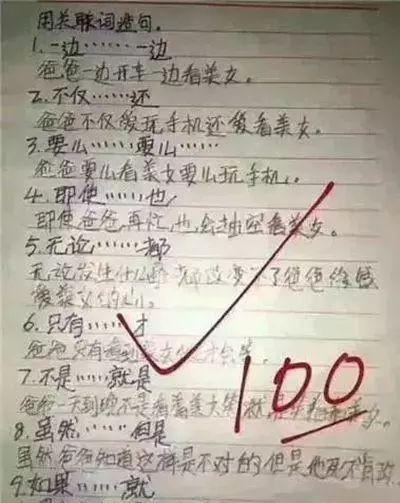 用关联词造句.
1.一边……一边
爸爸一边开车一边看美女。
2.不仅……还
爸爸不仅爱玩手机还爱看美女。
3.要么……要么……
爸爸要么看美女要么玩手机。
4.即使……也
即使爸爸再忙,也会抽空看美女。
5.无论……都
无论发生什么 都改变不了爸爸
爱美女的心。
6.只有……才
爸爸只有看到美女 才会笑。
7.不是……就是
爸爸一天到晚不是看着美女笑就是 美女。
8.虽然……但是
虽然爸爸知道这样是不对的但是他死不肯改
9.如果……就
100